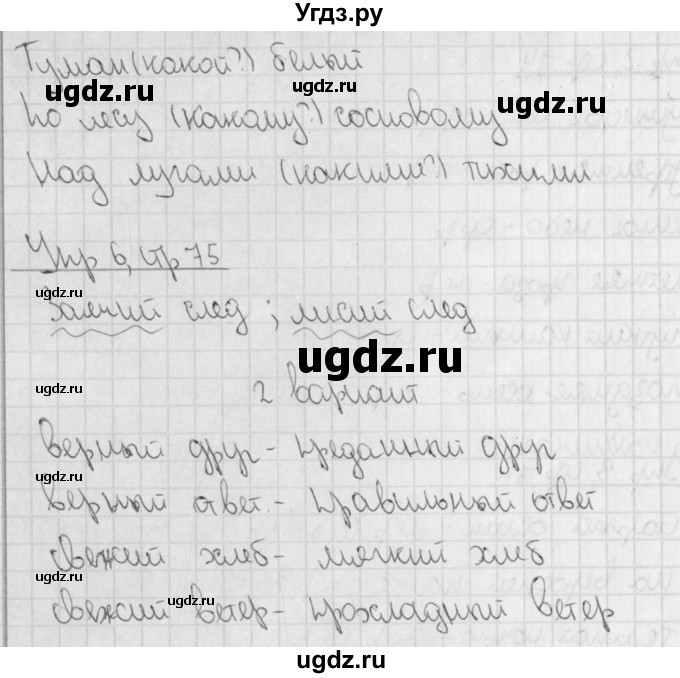 Угдз.ру
Туман (какой?) белый
ugdz.ru ugdz.ru
По лесу (какому?) сосновому
ugdz.ru
Над лугами (какими?) тихими
Упр 6, стр 75
ugdz.ru
Заячий след; лисий след
ugdz.ru
ugdz.ru
2 вариант
верный друг - преданный друг
ugdz.ru
верный ответ - правильный ответ
ugdz.ru
свежий хлеб - мягкий хлеб
ugdz.ru
свежий ветер - прохладный ветер
ugdz.ru ugdz.ru
ugdz.ru